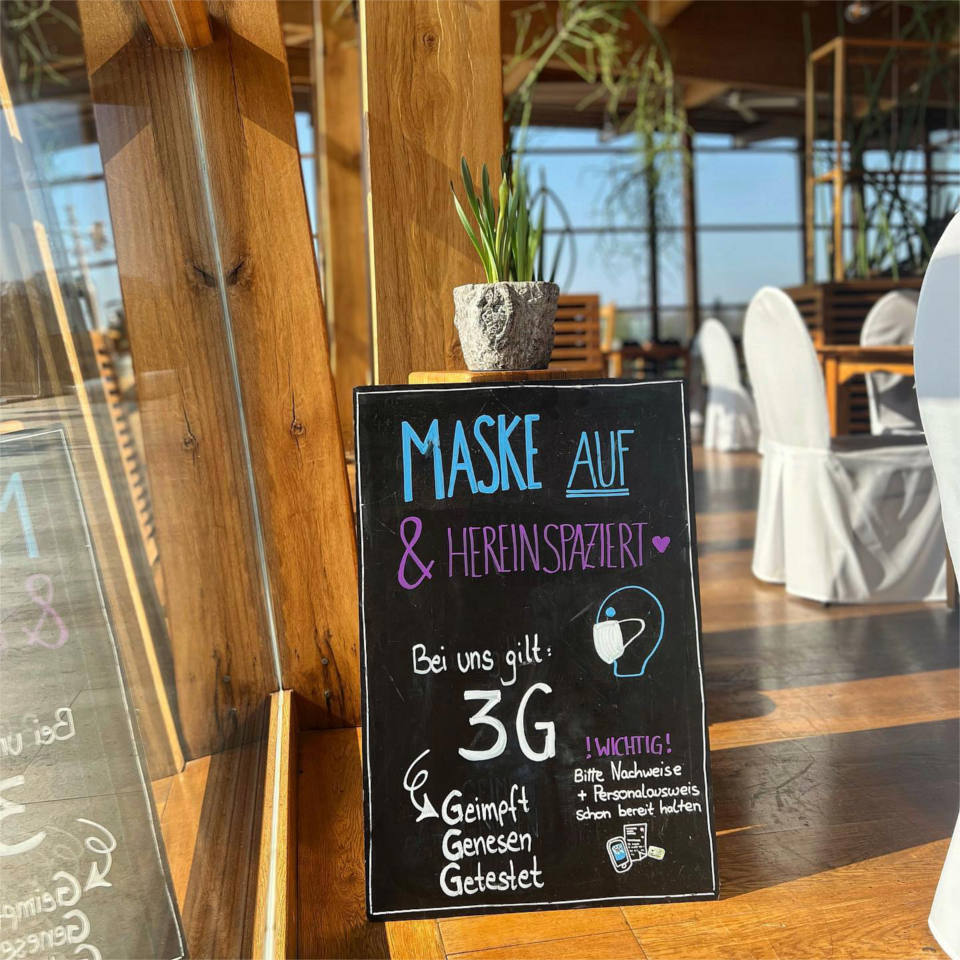 MASKE AUF
& HEREINSPAZIERT
Bei uns gilt:
3G
Geimpft
Genesen
Getestet
! WICHTIG !
Bitte Nachweise
+ Personalausweis
schon bereit halten